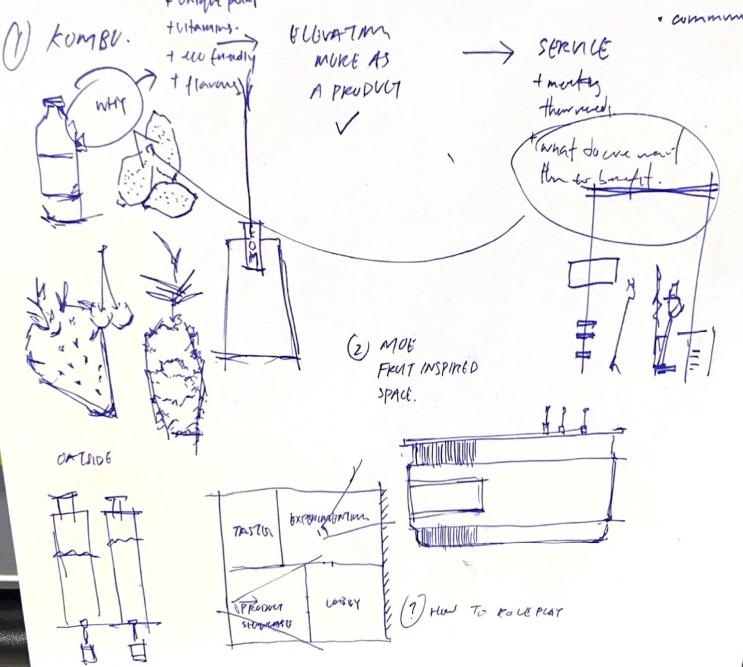 ① KOMBU.
+ unique
+ vitamins.
+ eco friendly
+ flavours
WHY
ELEVATING
MORE AS
A PRODUCT
SERVICE
+ meeting
their needs
+ what do we want
them to benefit.
• commun
KOM
② MOE
FRUIT INSPIRED
SPACE.
OATSIDE
TASTE
EXPERIMENTING
PRODUCT
SHOWCASE
LOBBY
③ HOW TO ROLEPLAY